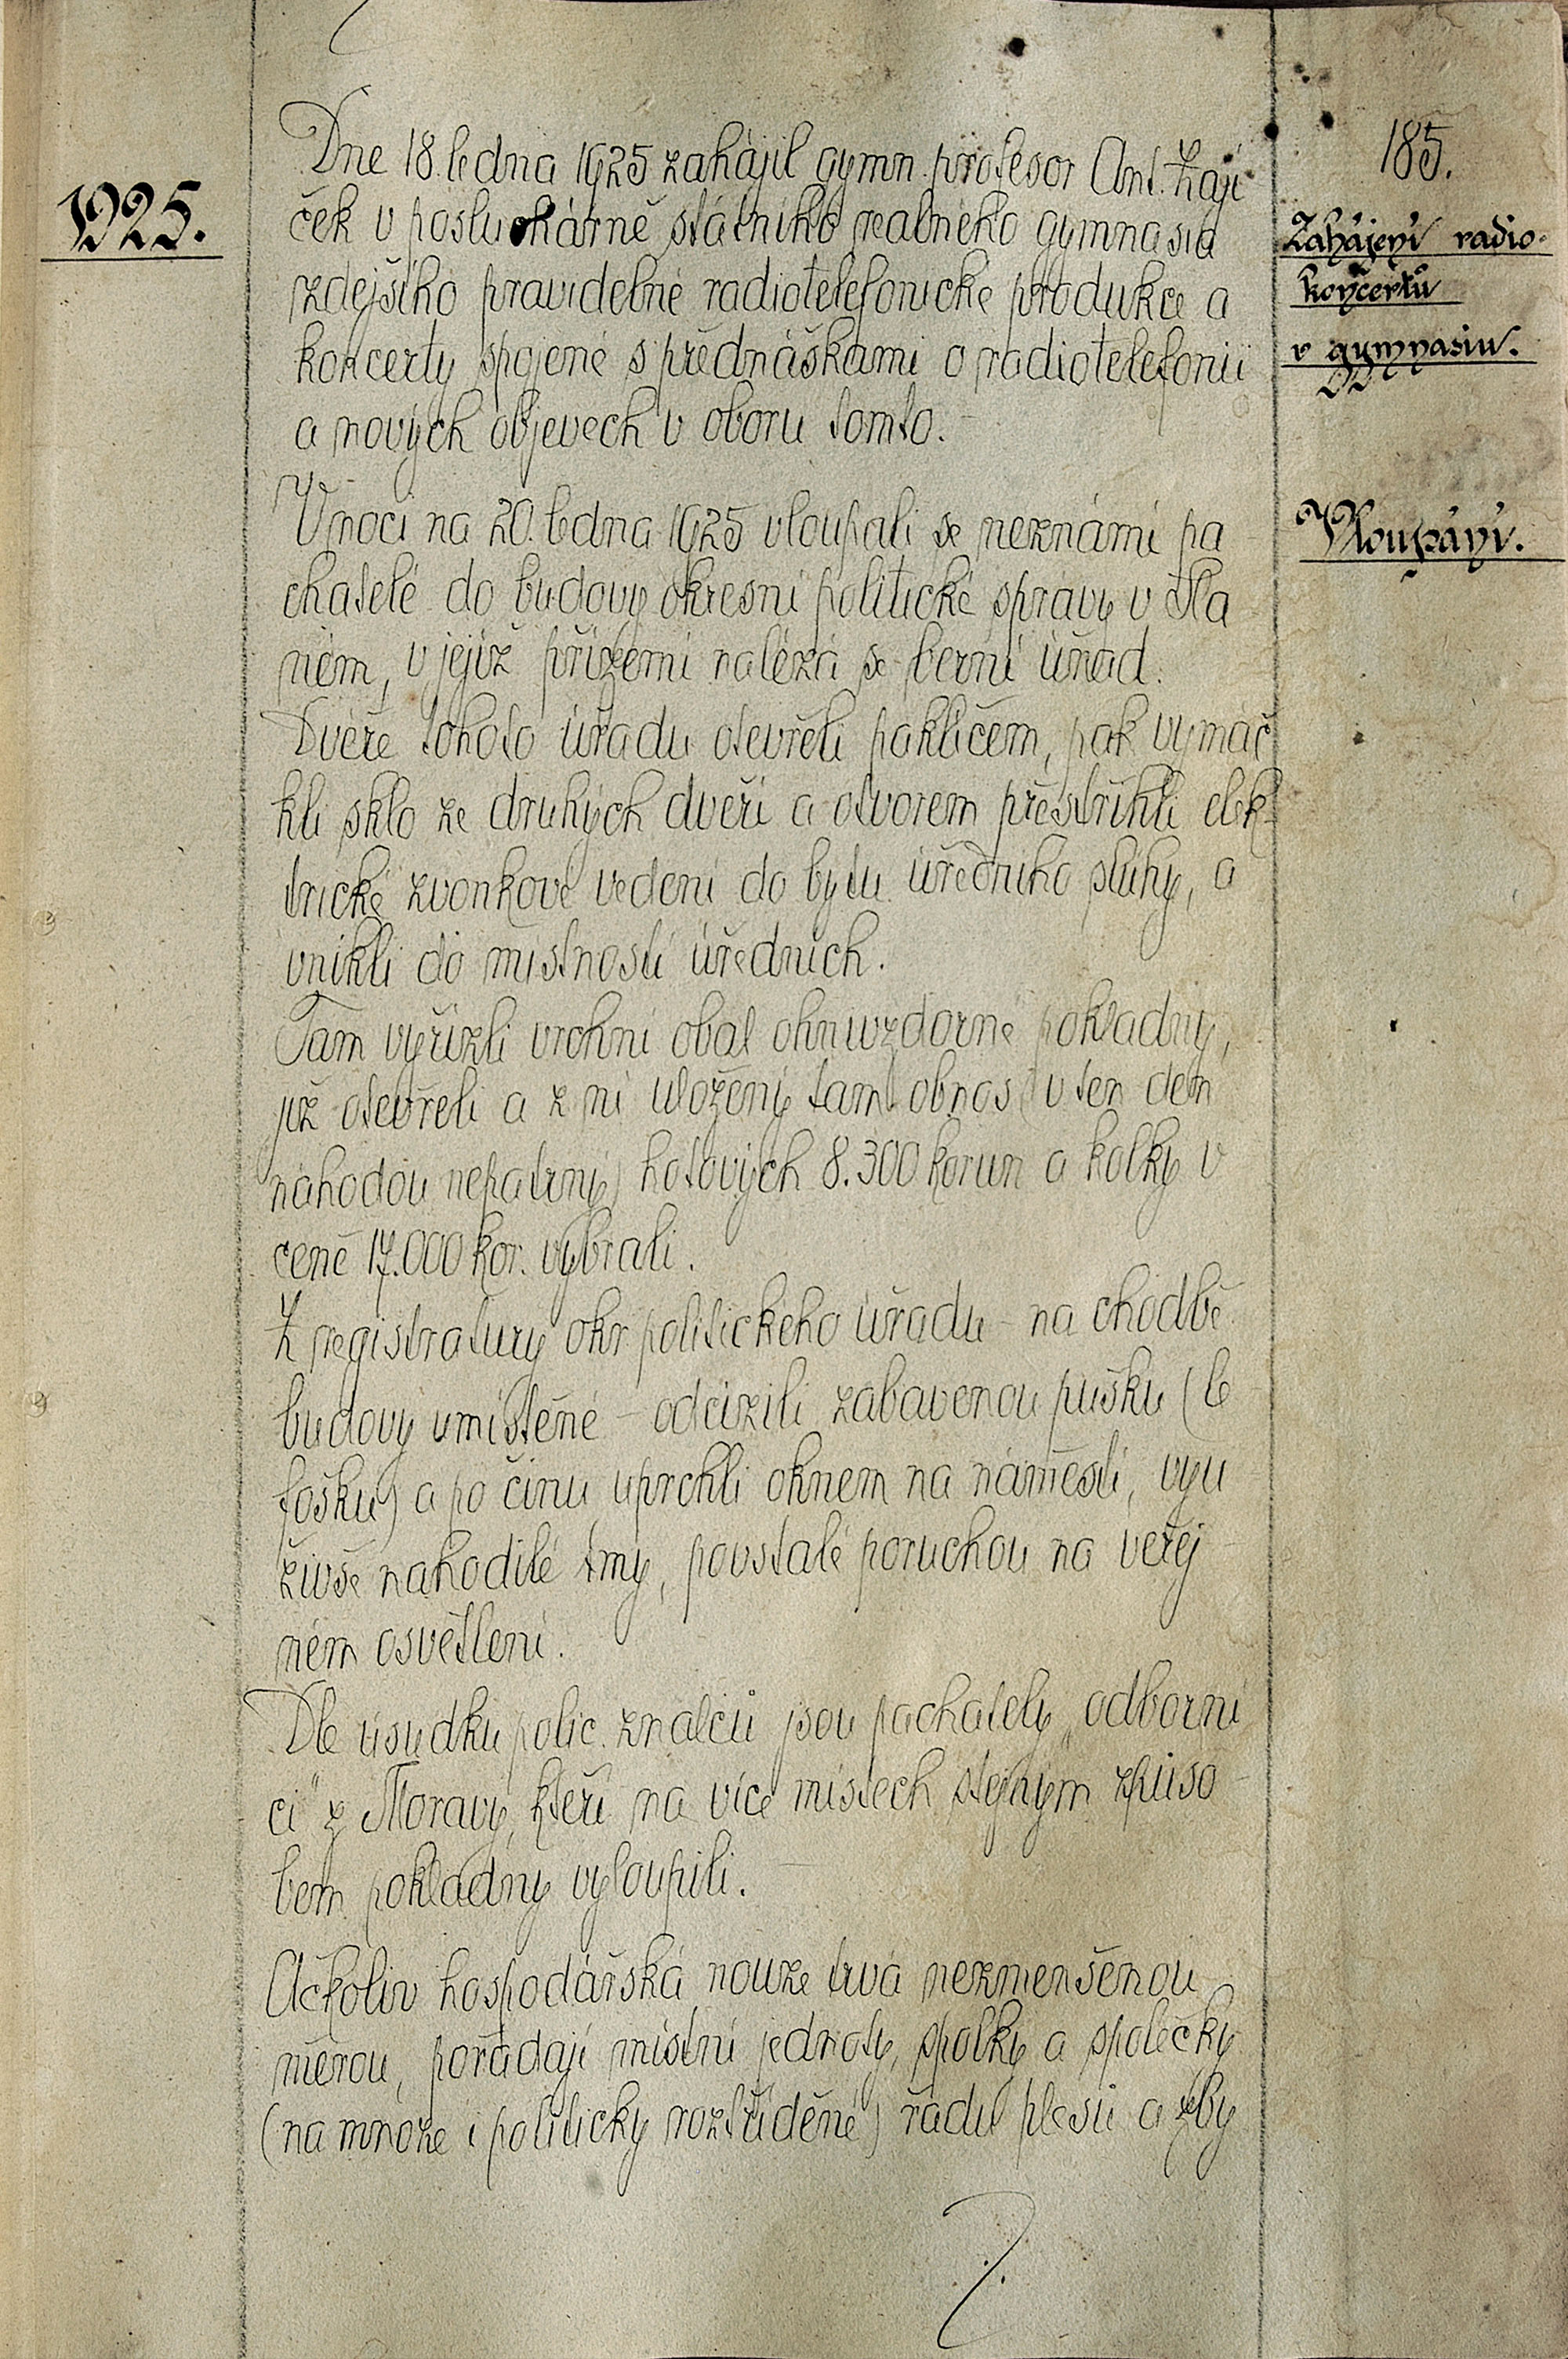 185.
1925.
Zahájení radio-
koncertů
v gymnasiu.
Dne 18. ledna 1925 zahájil gymn. profesor Ant. Zají
ček v posluchárně státního reálného gymnasia
zdejšího pravidelné radiotelefonické produkce a
koncerty spojené s přednáškami o radiotelefonii
a nových objevech v oboru tomto.
Vloupání.
V noci na 20. ledna 1925 vloupali se neznámí pa
chatelé do budovy okresní politické správy v Sla
ném, v jejíž přízemí nalézá se berní úřad.
Dvéře tohoto úřadu otevřeli paklíčem, pak vymáč
kli sklo ze druhých dveří a otvorem přestřihli elek-
trické zvonkové vedení do bytu úředního sluhy, a
vnikli do místností úředních.
Tam vyřízli vrchní obal ohnivzdorné pokladny,
již otevřeli a z ní uložený tam obnos (v ten den
náhodou nepatrný) hotových 8.300 korun a kolky v
ceně 17.000 kor. vybrali.
Z registratury okr politického úřadu - na chodbě
budovy umístěné - odcizili zabavenou pušku (le
fošku) a po činu uprchli oknem na náměstí, vyu
živše nahodilé tmy, povstalé poruchou na veřej-
ném osvětlení.
Dle úsudku polic. znalců jsou pachately „odborní
ci" z Moravy, kteří na více místech stejným způso-
bem pokladny vyloupili.
Ačkoliv hospodářská nouze trvá nezmenšenou
měrou, pořádají místní jednoty, spolky a společky
(na mnoze i politicky roztříděné) řadu plesů a